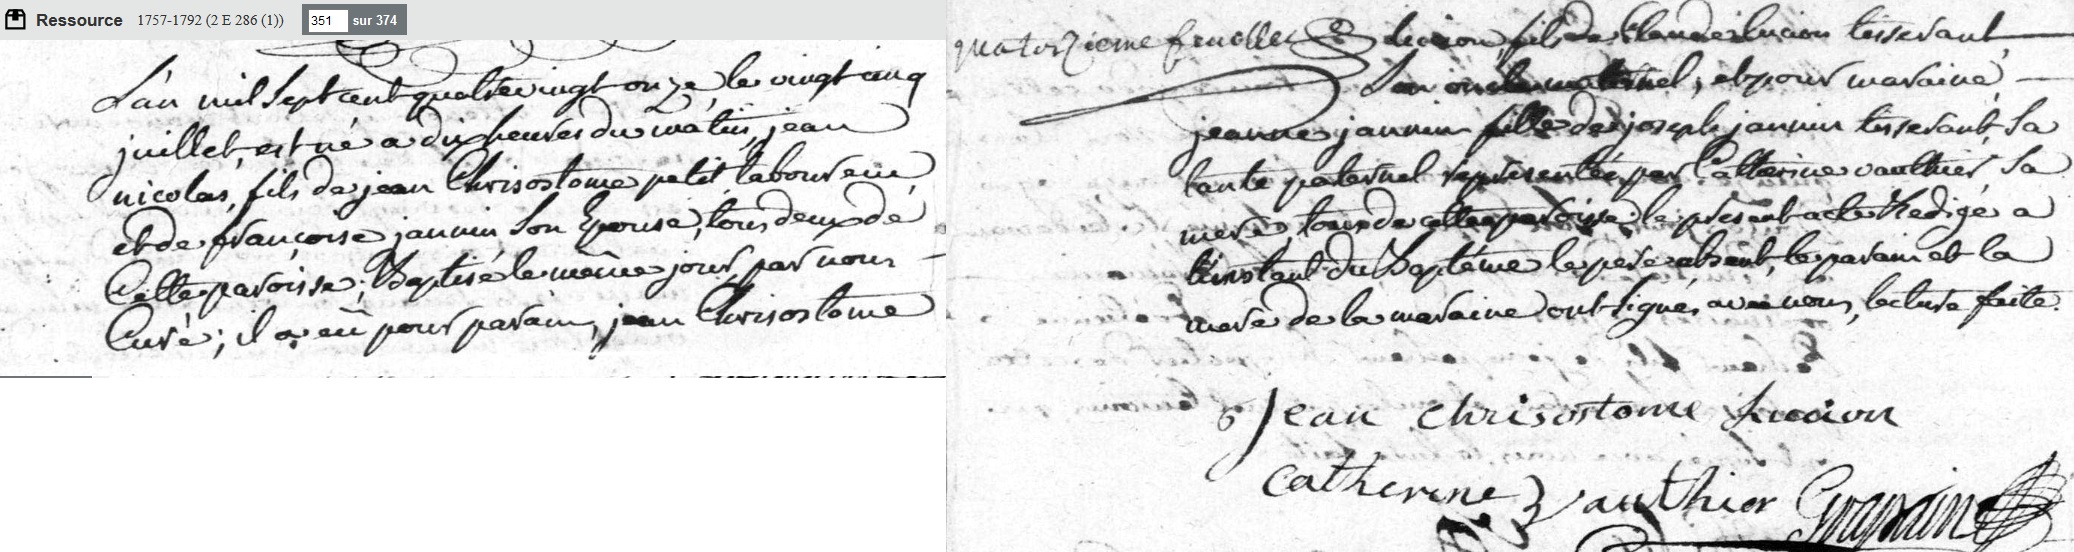 Ressource 1757-1792 (2 E 286 (1)) 351 sur 374
L'an mil sept cent quatrevingt onze, le vingt cinq
juillet, est né a dix heures du matin, jean
nicolas, fils de jean Chrisostome petit laboureur,
et de françoise jannin son Epouse, tous deux de
Cette paroisse; Baptisé le même jour, par nous
Curé; il a eu pour parain, jean Chrisostome
quatorzieme feuillet
lucion, fils de Claude lucion tisserant
son oncle maternel, et pour maraine,
jeanne jannin fille de joseph jannin tisserant, sa
tante paternel representée par Catherine vauthier, sa
mere, tous de cette paroisse; le present acte Redigé a
l'instant du Baptême le pere absent, le parain et la
mere de la maraine ont signés avec nous, lecture faite.
Jean chrisostome lucion
catherine Vauthier